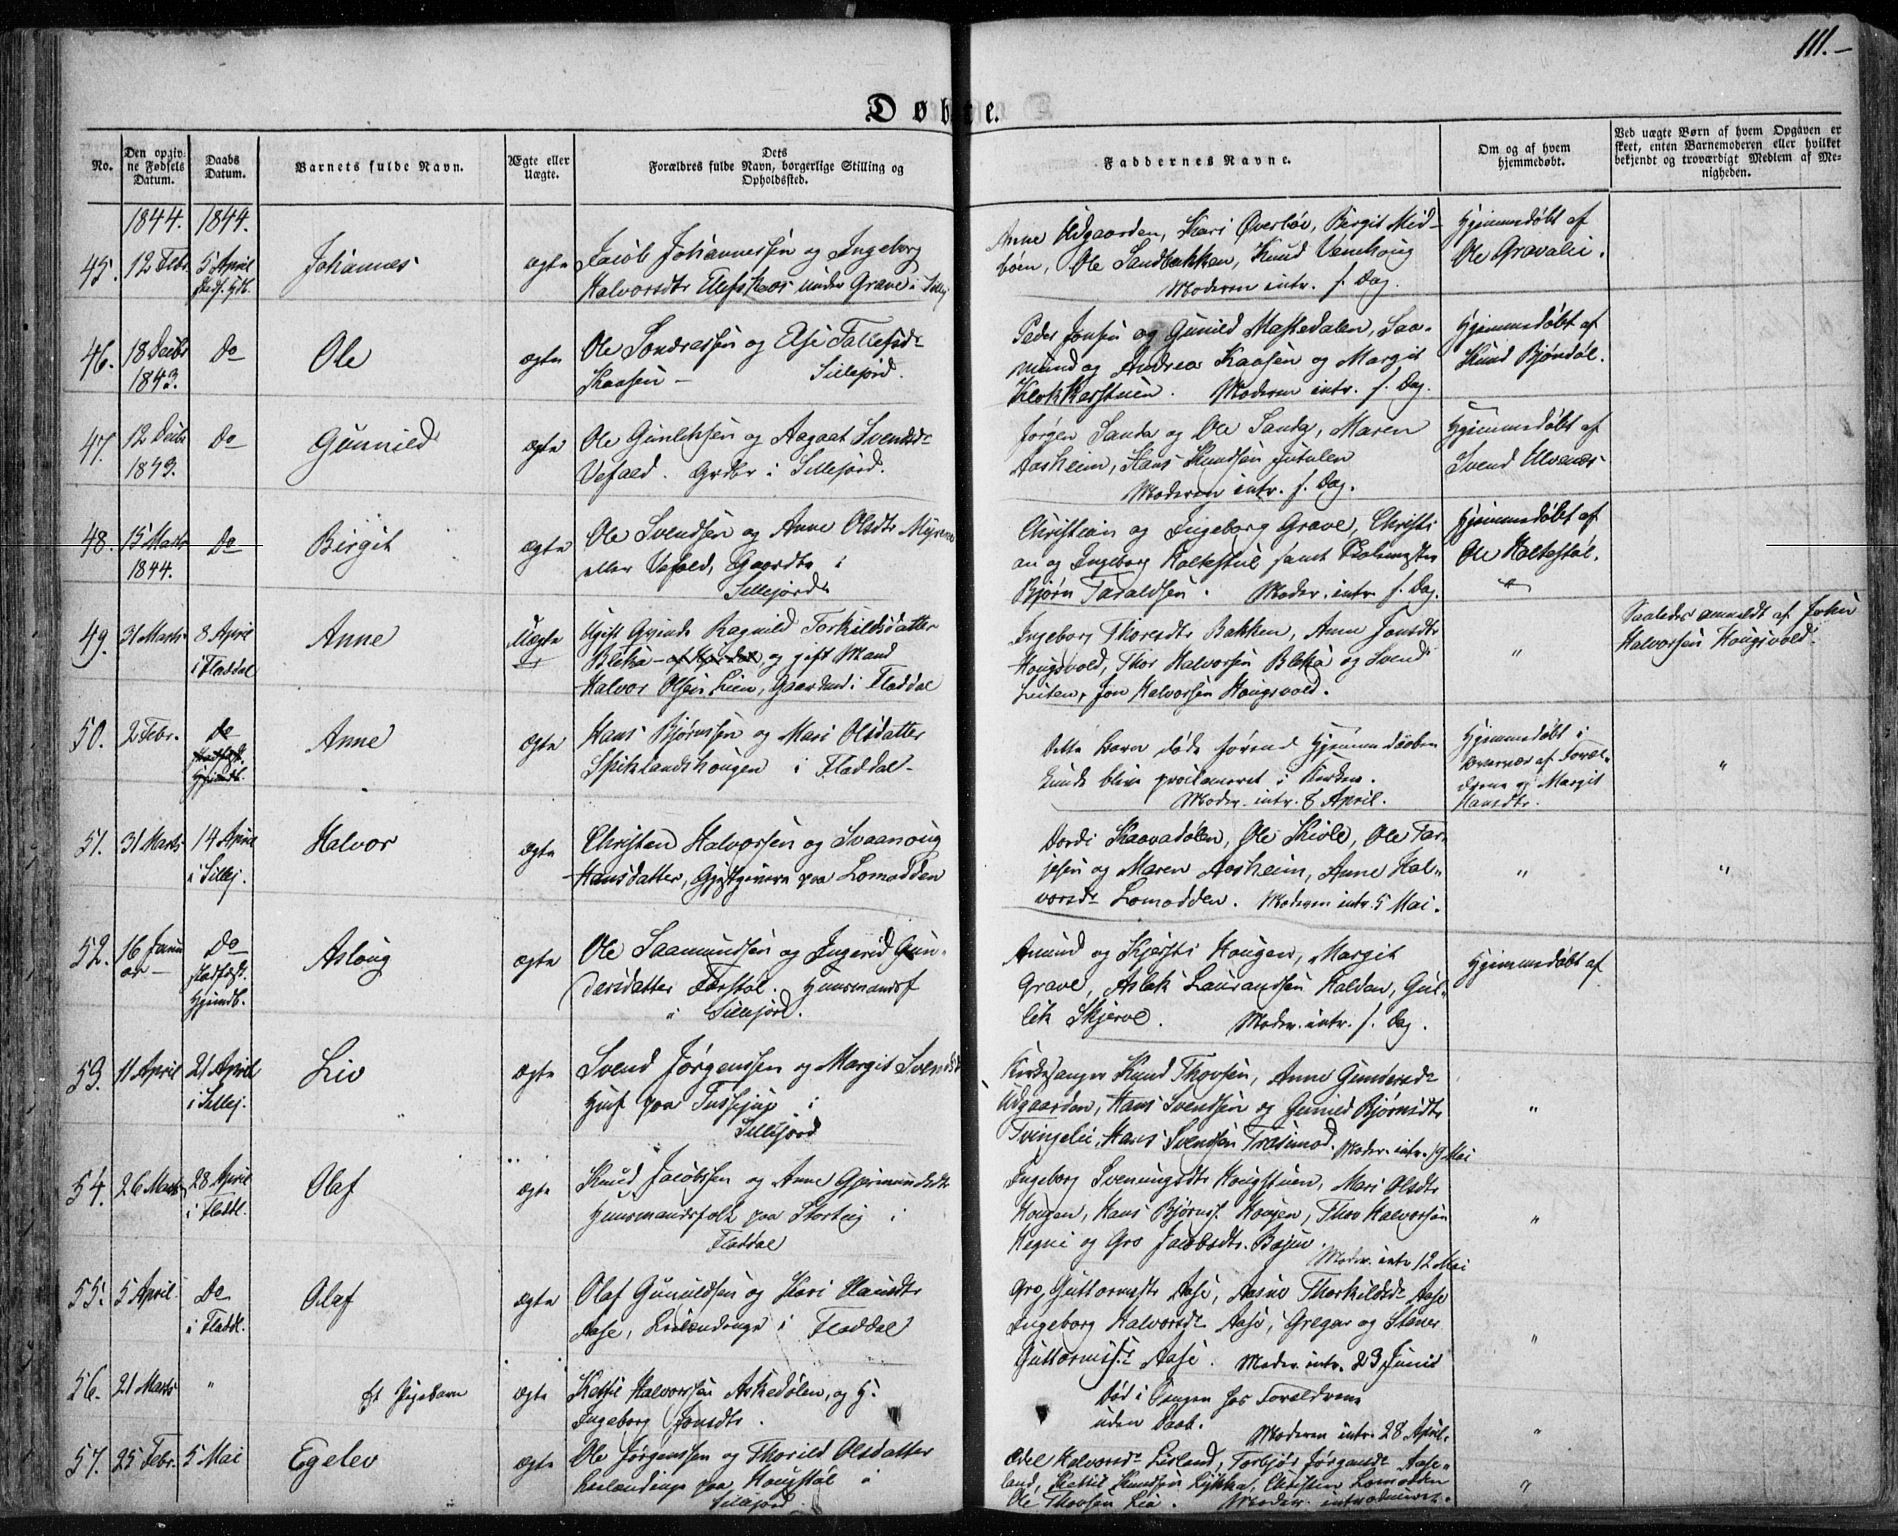 111.-
Døbte.
No.
Den opgiv-
ne Fødsels
Datum.
Daabs
Datum.
Barnets fulde Navn.
Ægte eller
Uægte.
Dets
Forældres fulde Navn, borgerlige Stilling og
Opholdssted.
Faddernes Navne.
Om og af hvem
hjemmedøbt.
Ved uægte Børn af hvem Opgaven er
skeet, enten Barnemoderen eller hvilket
bekjendt og troværdigt Medlem af Me-
nigheden.
1844. 1844.
45. 12 Febr. 5 April
Johannes
ægte
Jacob Johannessen og Ingeborg
Halvorsdtr under Grave i Sillej
Anne Udgaarden, Kari Øverbøe, Birgit Mid-
bøen, Ole Sandbakken, Knud Venhoug
Moderen intr. s. Dag.
Hjemmedøbt af
Ole Gravalie.
46. 18 Decbr 1843. Do
Ole
ægte
Ole Sondresen og Else Tallefsdr
Kaasen - Sillejord.
Peder Jonsen og Gunild Mastedalen, Saa-
mund og Andrea Kaasen og Margit
Klokkerstuen. Moderen intr. s. Dag.
Hjemmedøbt af
Knud Bjøndøl.
47. 12 Decbr 1843. Do
Gunnild
ægte
Ole Gunleksen og Aagaat Svendsdr
Vefald. Grdbr i Sillejord.
Jørgen Sanda og Ole Sanda, Maren
Aasheim, Hans Knudsen Jutulen
Moderen intr. s. Dag.
Hjemmedøbt af
Svend Ulvenes
48. 15 Marts 1844. Do
Birgit
ægte
Ole Svendsen og Anne Olsdtr Myrene
eller Vefald, Gaardbr i
Sillejord
Christian og Ingeborg Grave, Christi
an og Ingeborg Holtestul samt Skolemester
Bjørn Taraldsen. Moder. intr. s. Dag.
Hjemmedøbt af
Ole Holtestøl.
"
49. 31 Marts 8 April
i Fladdal
Anne
Uægte
Ugift Qvinde Ragnild Torkildsdatter
Bleka - og gift Mand
Halvor Olsen Lien, Gaardmd i Fladdal
Ingeborg Thoresdtr Bakken, Anne Jonsdtr
Hougsvold, Thor Halvorsen Bleka og Svend
Leiten, Jon Halvorsen Hougsvold.
"
Saaledes anmeldt af John
Halvorsen Hougsvold.
50. 2 Febr. Do
Hjemdb.
Anne
ægte
Hans Bjørnsen og Mari Olsdatter
Spiklandshougen i Fladdal
Dette Barn døde førend Hjemmedaaben
kunde blive proclameret i Kirken.
Moder. intr. 8 April.
Hjemmedøbt i
Overvær af Foræl-
drene og Margit
Hansdtr.
"
51. 31 Marts 14 April
i Sillej.
Halvor
ægte
Christen Halvorsen og Svaanoug
Hansdatter, Gjæstgivere paa Lomodden
Dordi Kaavadølen, Ole Kivle, Ole Tar-
jesen og Maren Aasheim, Anne Hal-
vorsdr Lomodden. Moderen intr. 5 Mai.
"
"
52. 16 Janu
ar - Do
stadfæst.
Hjemdb.
Aslaug
ægte
Ole Saamundsen og Ingerid Gun-
darsdatter Husmandsf
i Sillejord.
Amund og Kjersti Hougen, Margit
Grave, Aslek Laurandsen Haldan, Gul-
lik Skjerve. Moder. intr. s. Dag.
Hjemmedøbt af
53. 11 April 21 April
i Sillej.
Liv
ægte
Svend Jørgensen og Margit Svendsd
Husf paa i
Sillejord
Kirkesanger Knud Thovsen, Anne Gundersdr
Udgaarden, Hans Svendsen og Gunild Bjørnsdtr
Tvingelie, Hans Svendsen Moder. intr. 19 Mai
"
54. 26 Marts 28 April
i Fladdl.
Olaf
ægte
Knud Jacobsen og Anne Gjermundsdtr
Huusmandsfolk paa Storteig i
Fladdal
Ingeborg Sveningsdtr Hougstuen, Mari Olsdtr
Hougen, Hans Bjørns. Hougen, Thov Halvorsen
Hegni og Gro Jacobsdtr. Bøjen.
Moder. intr 12 Mai
"
55. 5 April Do
i Fladdl.
Olaf
ægte
Olaf Gunuldsen og Kari Hansdtr
Aase, Leilændinge i Fladdal
Gro Guttormsdtr Aase, Aasne Thorkildsdr Aase
Ingeborg Halvorsdr Aase, Gregar og Stener
Guttorms. Aase. Moder. intr. 23 Junii
"
56. 21 Marts "
Et Pigebarn
ægte
Kettil Halvorsen Askedølen, og H.
Ingeborg Jonsdtr.
Død i Sengen hos Forældrene
uden Daab.
Moderen intr. 28 April.
"
57. 25 Febr. 5 Mai
Egelev
ægte
Ole Jørgensen og Thorild Olsdatter
Leilændinge paa Hougstøl i
Sillejord
Ædel Halvorsdr Lisland, Torbjør Jørgensdr Aase-
land, Kettil Knudsen Lykka, Christen Lomodden
Ole Thovsen Lia. Moder. introduceret.
"